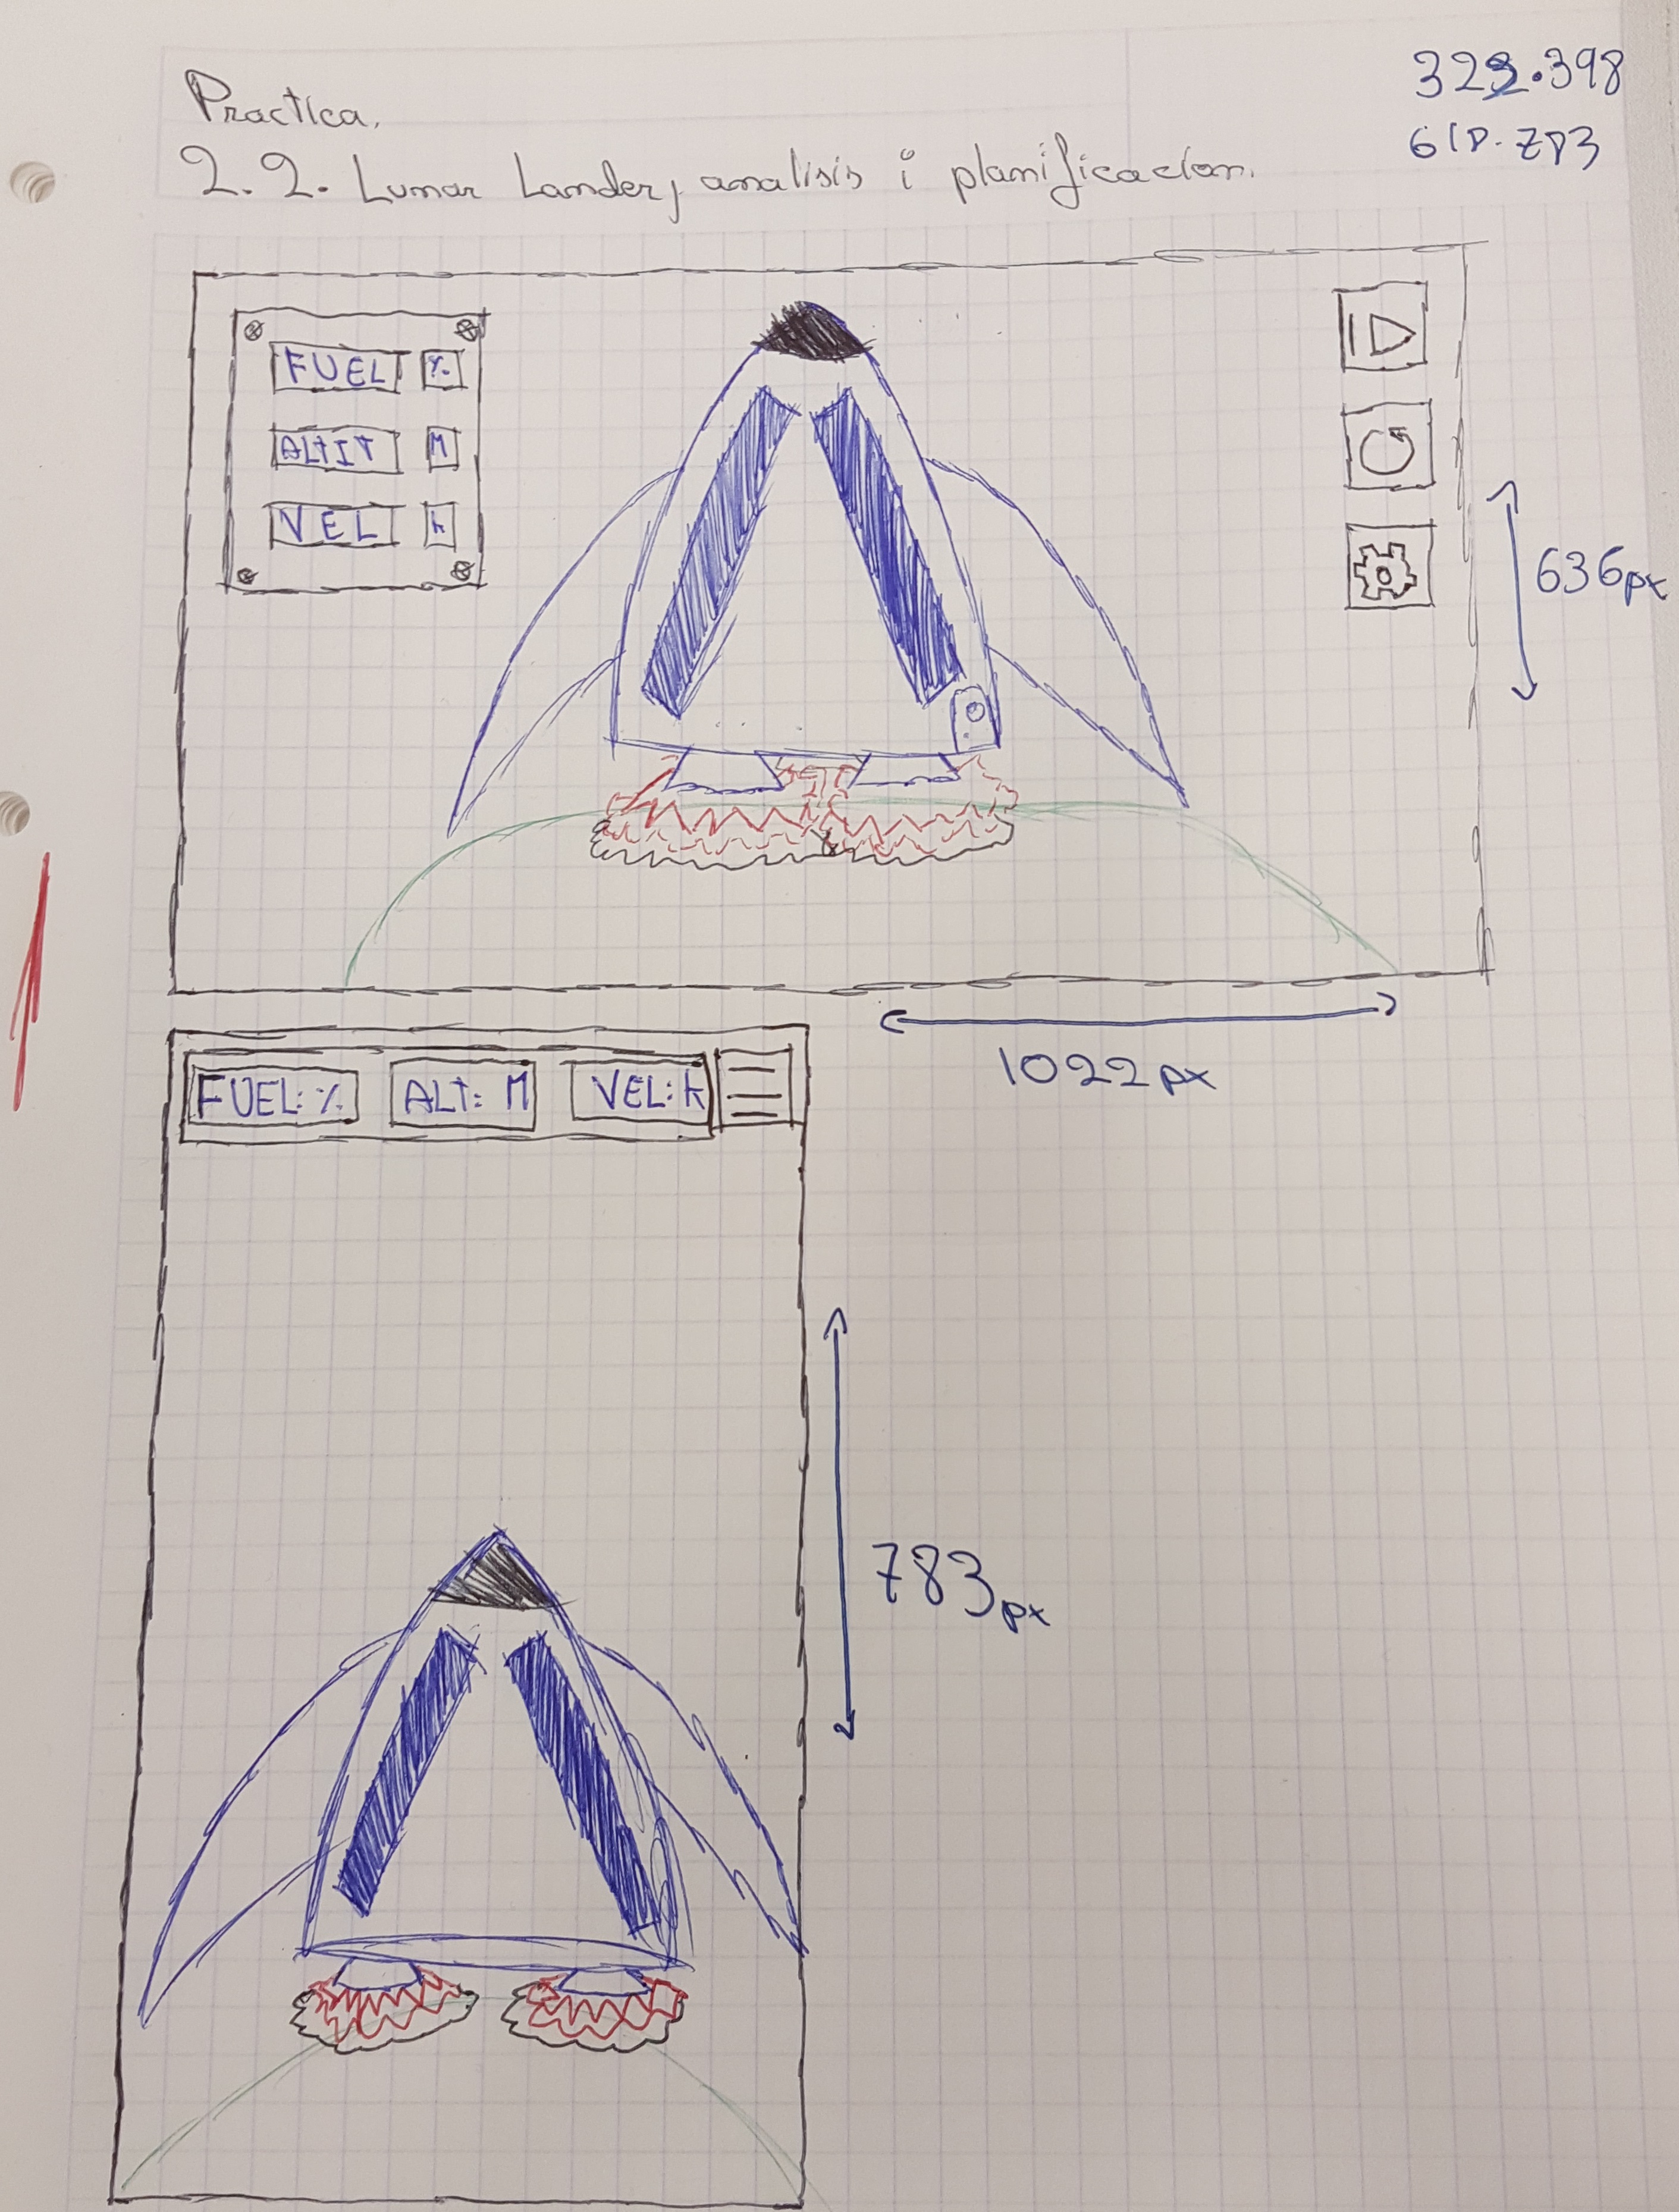 Practica.
2.2. Lunar Lander, analisis i planificacion.
FUEL %
ALTIT M
VEL h
636px
1022px
FUEL: % ALT: M VEL: h
783px